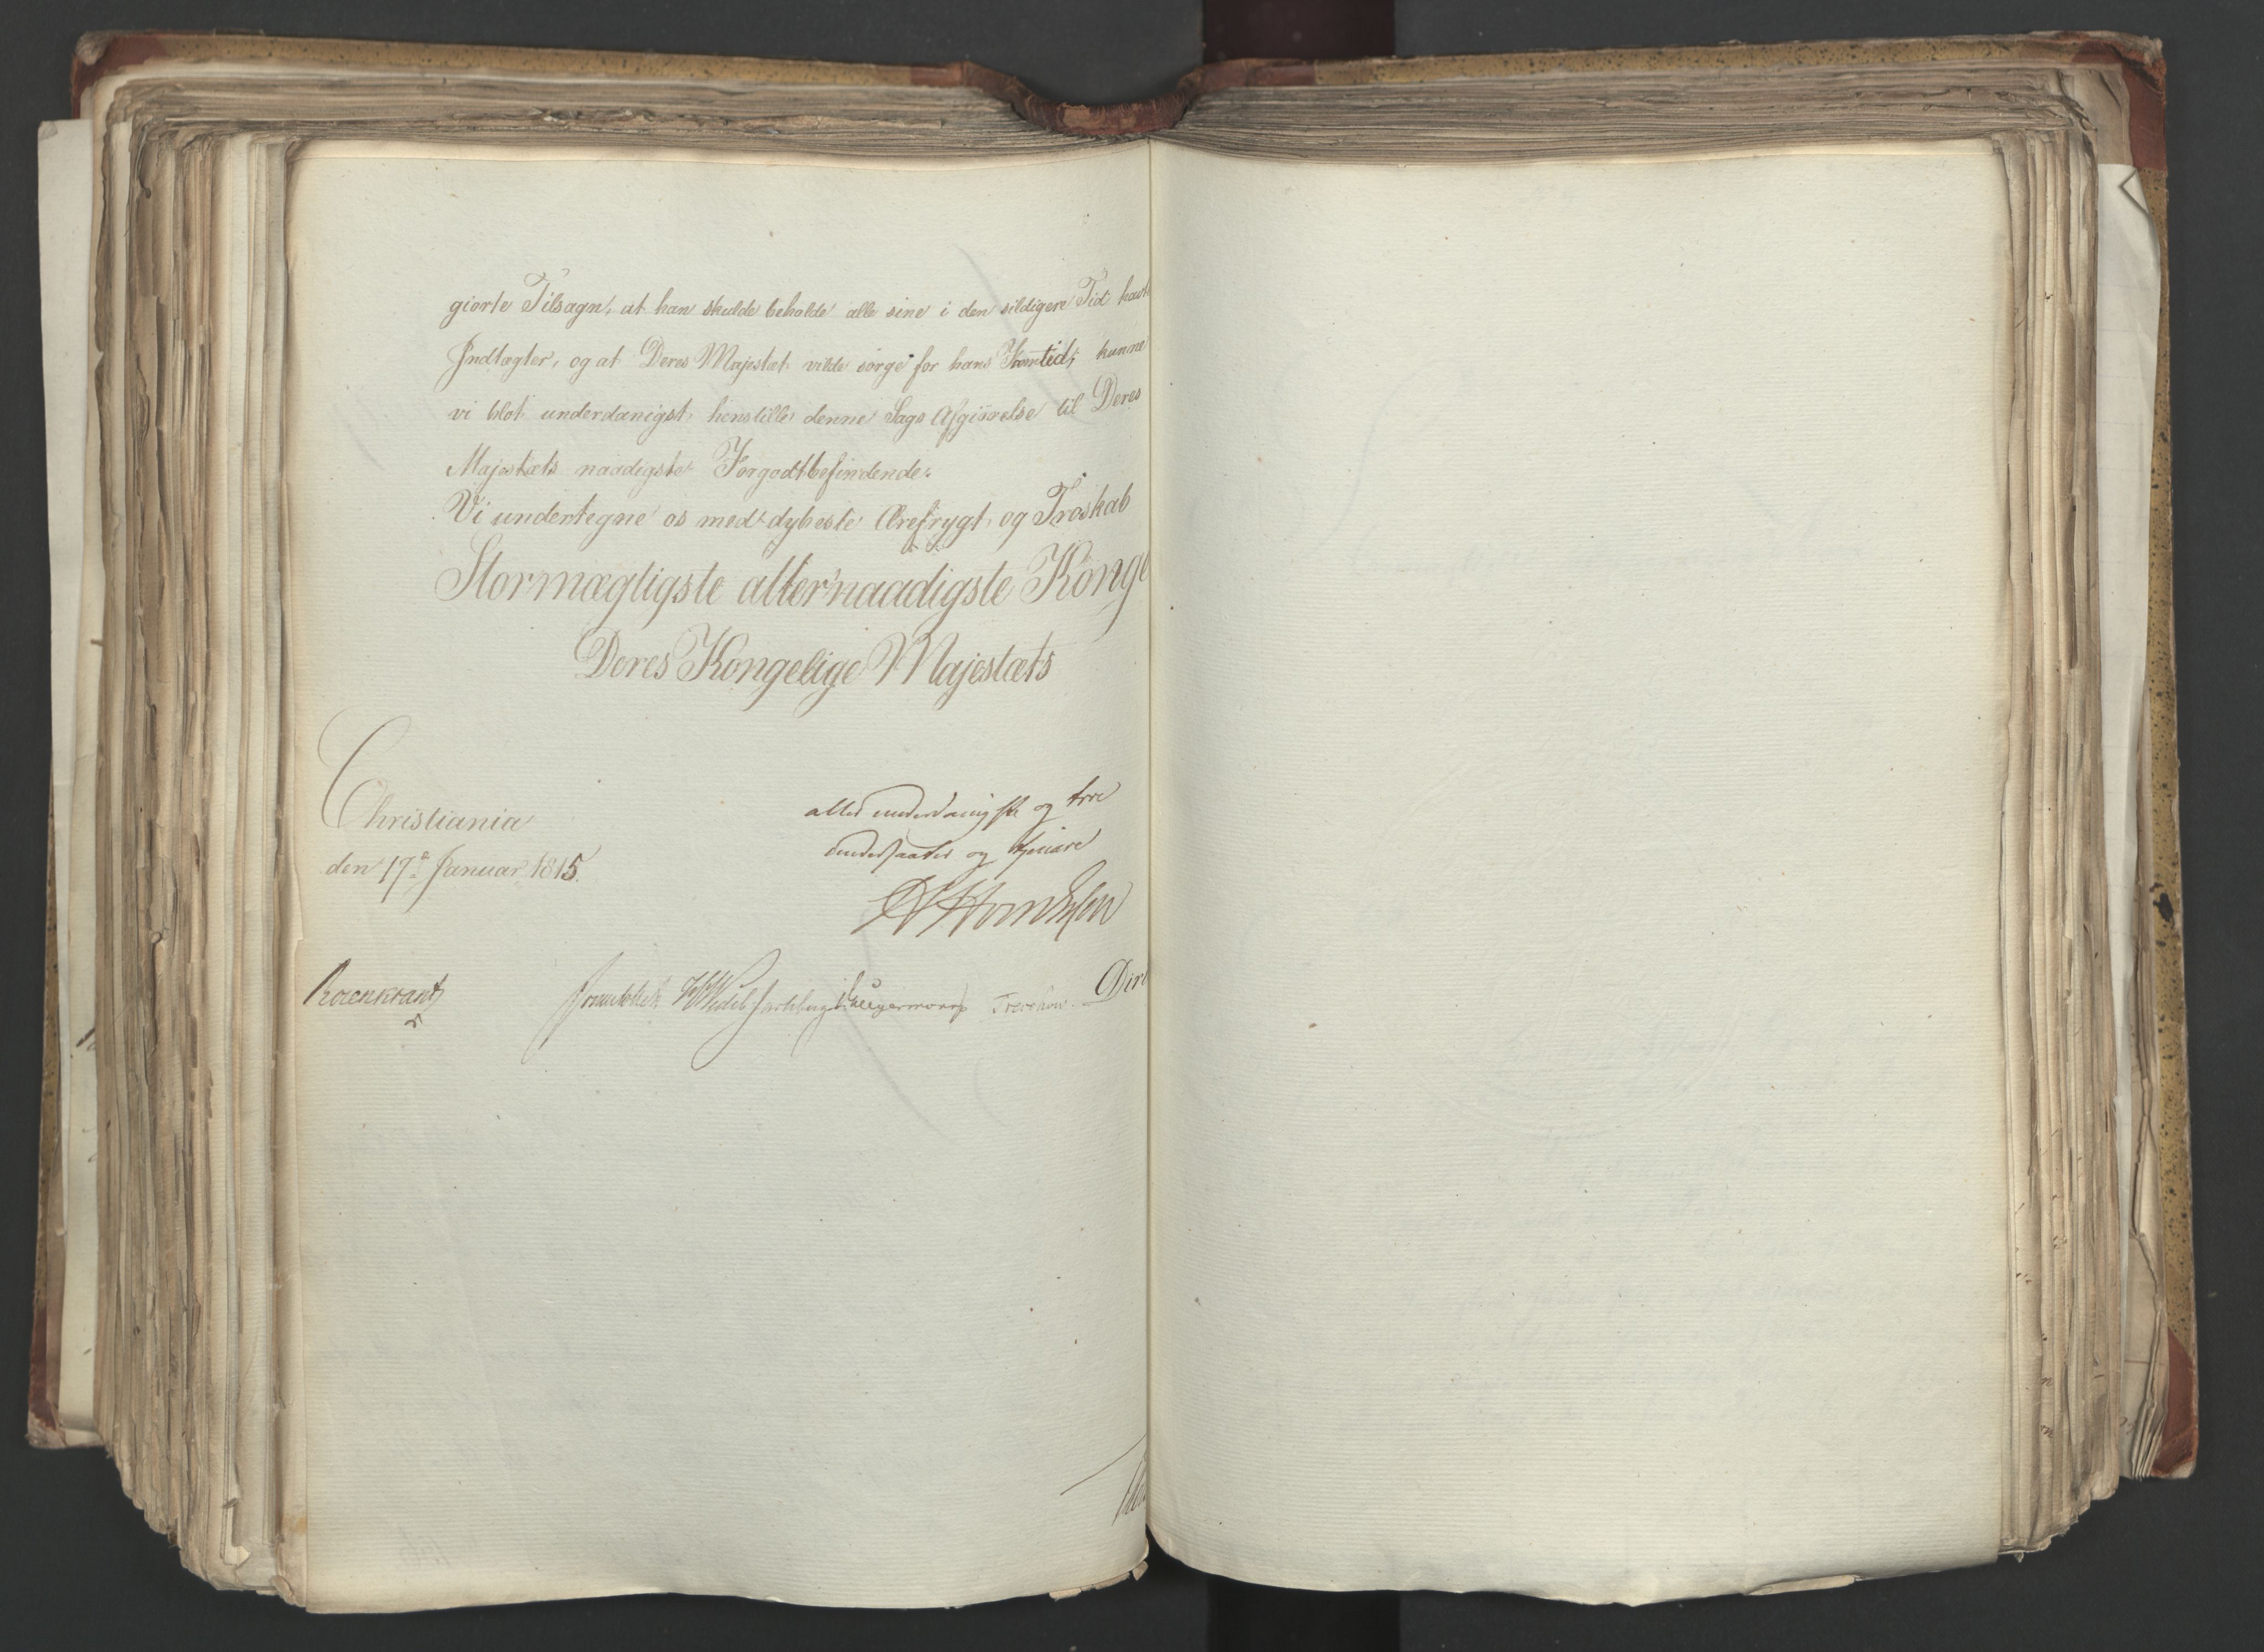 giorte Tilsagn, at han skulde beholde alle sine i den sildigere Tid havte
Indtægter, og at Deres Majestæt vilde sørge for hans Fremtid, kunne
vi blot underdanigst henstille denne Sags Afgiørelse til Deres
Majestæts naadigste Forgodtbefindende.
Vi undertegne os med dybeste Ærefrygt og Troskab
Stormægtigste allernaadigste Konge
Deres Kongelige Majestæts
Christiania
den 17de Januar 1815.
allerunderdanigste og troe
undersaatter og tjenere
Rosenkrantz
Treschow